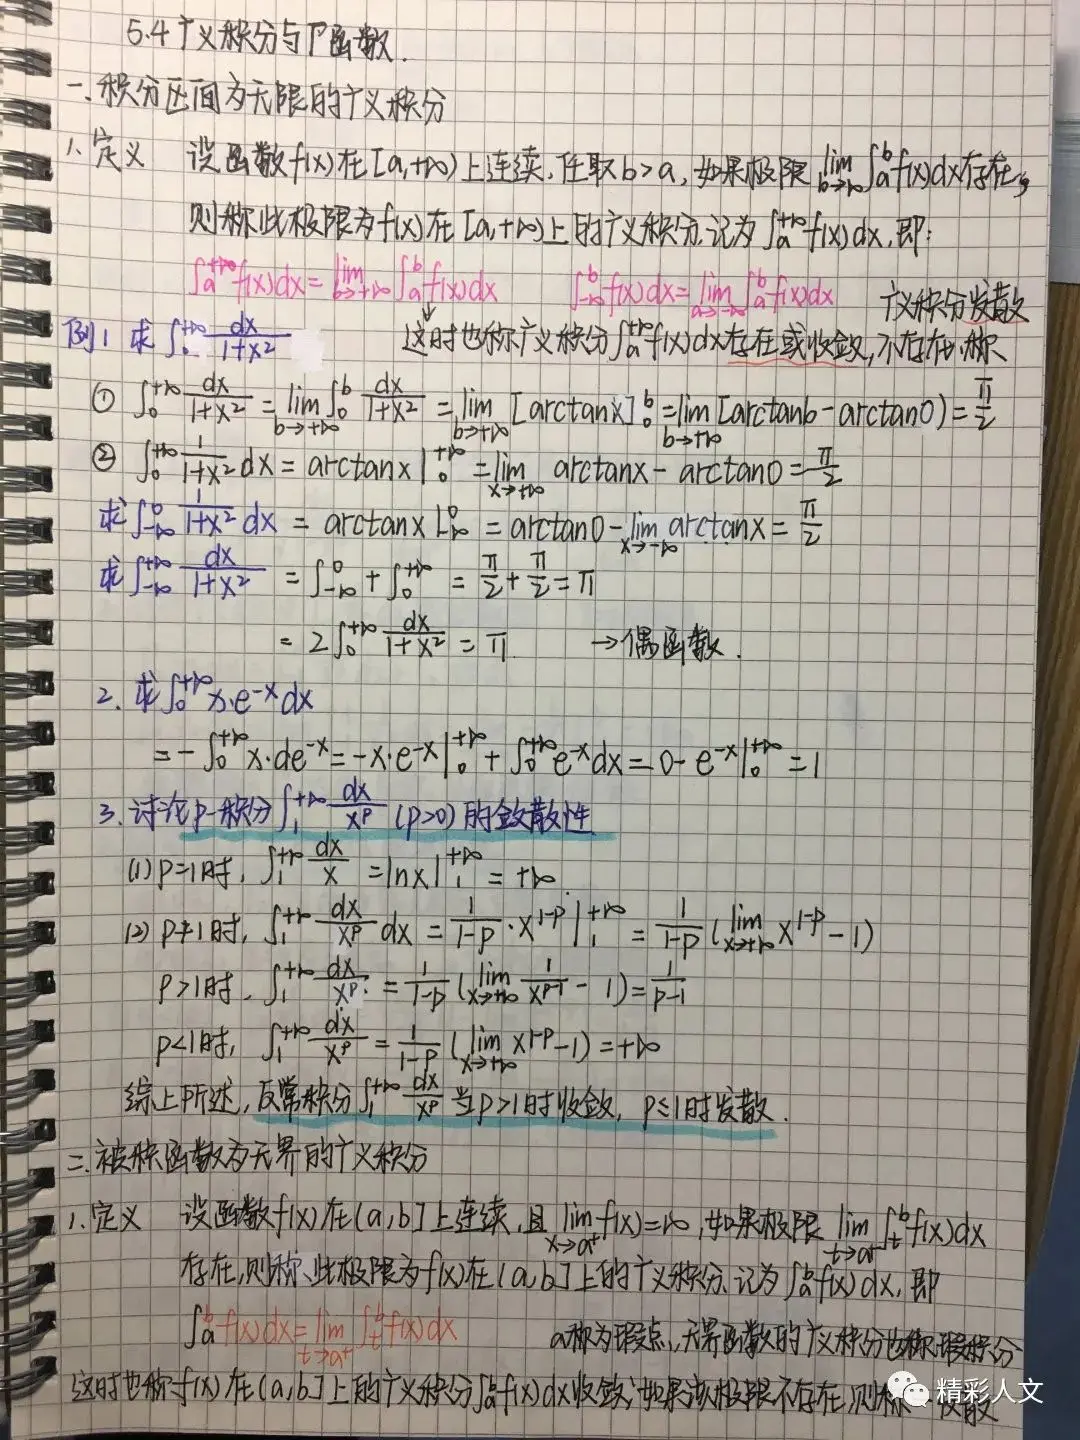 5.4 广义积分与Γ函数.
一. 积分区间为无限的广义积分
1. 定义 设函数f(x)在[a,+∞)上连续,任取b>a,如果极限 lim_{b→+∞} ∫_a^b f(x)dx存在,
则称此极限为f(x)在[a,+∞)上的广义积分,记为 ∫_a^{+∞} f(x)dx,即:
∫_a^{+∞} f(x)dx = lim_{b→+∞} ∫_a^b f(x)dx ∫_{-∞}^b f(x)dx = lim_{a→-∞} ∫_a^b f(x)dx 广义积分发散
例1 求 ∫_0^{+∞} dx/(1+x²) 这时也称广义积分 ∫_a^{+∞} f(x)dx存在或收敛,不存在,称
① ∫_0^{+∞} dx/(1+x²) = lim_{b→+∞} ∫_0^b dx/(1+x²) = lim_{b→+∞} [arctanx]_0^b = lim_{b→+∞} [arctanb-arctan0) = π/2
② ∫_0^{+∞} 1/(1+x²) dx = arctanx|_0^{+∞} = lim_{x→+∞} arctanx - arctan0 = π/2
求 ∫_{-∞}^0 1/(1+x²) dx = arctanx|_{-∞}^0 = arctan0 - lim_{x→-∞} arctanx = π/2
求 ∫_{-∞}^{+∞} dx/(1+x²) = ∫_{-∞}^0 + ∫_0^{+∞} = π/2 + π/2 = π
= 2∫_0^{+∞} dx/(1+x²) = π. →偶函数.
2. 求 ∫_0^{+∞} x·e^{-x}dx
= -∫_0^{+∞} x·de^{-x} = -x·e^{-x}|_0^{+∞} + ∫_0^{+∞} e^{-x}dx = 0 - e^{-x}|_0^{+∞} = 1
3. 讨论p-积分 ∫_1^{+∞} dx/x^p (p>0) 的敛散性
(1) p=1时, ∫_1^{+∞} dx/x = lnx|_1^{+∞} = +∞.
(2) p≠1时, ∫_1^{+∞} dx/x^p dx = 1/(1-p)·x^{1-p}|_1^{+∞} = 1/(1-p) (lim_{x→+∞} x^{1-p} - 1)
p>1时, ∫_1^{+∞} dx/x^p = 1/(1-p) (lim_{x→+∞} 1/x^{p-1} - 1) = 1/(p-1)
p<1时, ∫_1^{+∞} dx/x^p = 1/(1-p) (lim_{x→+∞} x^{1-p} - 1) = +∞
综上所述,反常积分 ∫_1^{+∞} dx/x^p 当p>1时收敛, p≤1时发散.
二. 被积函数为无界的广义积分
1. 定义 设函数f(x)在(a,b]上连续,且 lim_{x→a⁺} f(x)=∞,如果极限 lim_{t→a⁺} ∫_t^b f(x)dx
存在,则称此极限为f(x)在(a,b]上的广义积分,记为 ∫_a^b f(x)dx,即
∫_a^b f(x)dx = lim_{t→a⁺} ∫_t^b f(x)dx a称为瑕点,无界函数的广义积分也称瑕积分
这时也称f(x)在(a,b]上的广义积分 ∫_a^b f(x)dx收敛;如果该极限不存在,则称 发散
精彩人文